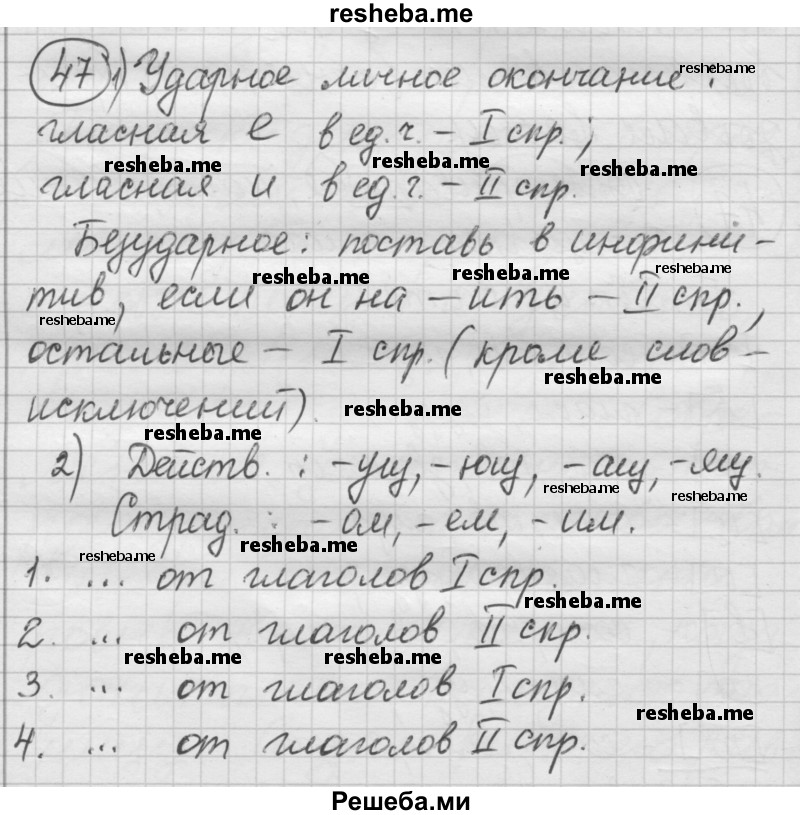 resheba.me
47 1) Ударное личное окончание: resheba.me
гласная е в ед.ч. – I спр.;
resheba.me resheba.me resheba.me
гласная и в ед.ч. – II спр.
Безударное: поставь в инфини-
resheba.me resheba.me resheba.me
тив, если он на –ить – II спр.,
resheba.me
остальные – I спр. (кроме слов-
resheba.me
исключений). resheba.me
resheba.me
2) Действ.: -ущ, -ющ, -ащ, -ящ.
resheba.me resheba.me
Страд.: -ом, -ем, -им.
resheba.me resheba.me
1. ... от глаголов I спр.
resheba.me
2. ... от глаголов II спр.
resheba.me resheba.me
3. ... от глаголов I спр.
resheba.me
4. ... от глаголов II спр.
Решеба.ми